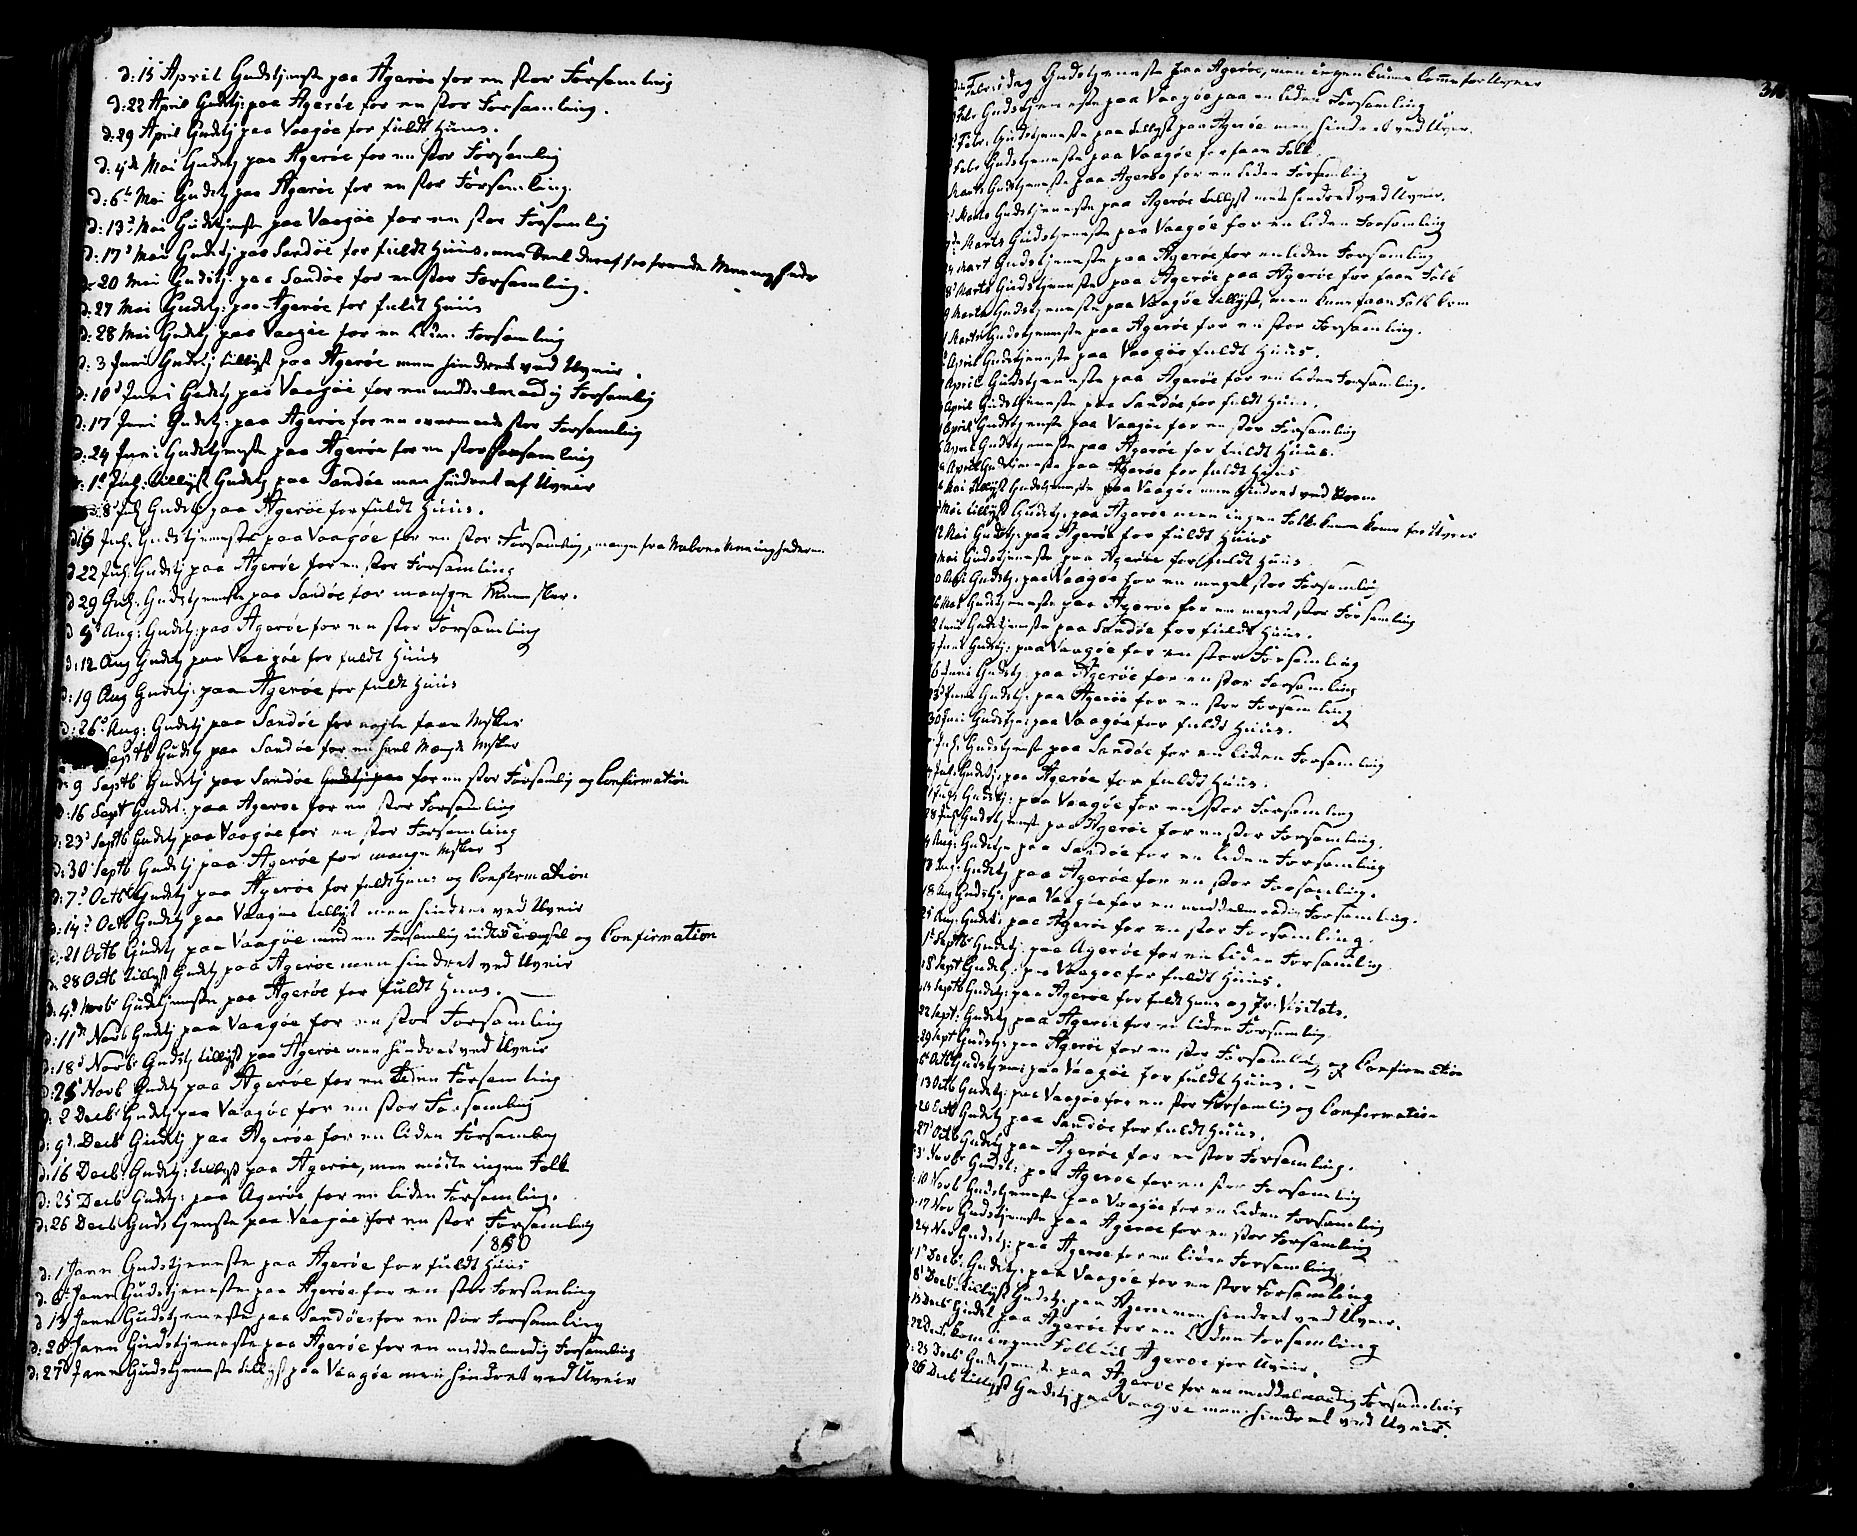 d: 15 April Gudstjeneste paa Agerøe for en stor Forsamling
d: 22 April Gudstj: paa Agerøe for en stor Forsamling.
d: 29 April Gudstj paa Vaagøe for fuldt Huus.
d: 4de Mai Gudstj paa Agerøe for en stor Forsamling
d: 6te Mai Gudstj paa Agerøe for en stor Forsamling.
d: 13d Mai Gudstjeneste paa Vaagøe for en stor Forsamling
d: 17d Mai Gudstj paa Sandøe for fuldt Huus, men deraf fra fremde Meenigheder
d: 20 Mai Gudstj: paa Sandøe for en stor Forsamling.
d: 27 Mai Gudstj: paa Agerøe for fuldt Huus
d: 28 Mai Gudstj paa Vaagøe for en liden Forsamling
d: 3 Juni Gudstj tillyst paa Agerøe men hindret ved Uveir.
d: 10d Juni Gudstj paa Vaagøe for en middelmaadig Forsamling
d: 17 Juni Gudstj: paa Agerøe for en overmaade stor Forsamling
d: 24 Juni Gudstjeneste paa Agerøe for en stor Forsamling
d: 1d Juli: tillyst Gudstj paa Sandøe men hindret af Uveir
8 Juli Gudstj paa Agerøe for fuldt Huus.
d 15 Juli: Gudstjeneste paa Vaagøe for en stor Forsamling, mange fra Naboe Meenighederne
d 22 Juli: Gudstj paa Agerøe for en stor Forsamling
d 29 Juli: Gudstjeneste paa Sandøe for mange Mennesker.
d 5d Aug: Gudstj: paa Agerøe for en stor Forsamling
d: 12 Aug Gudstj paa Vaagøe for fuldt Huus
d: 19 Aug Gudstj: paa Agerøe for fuldt Huus
d: 26d Aug: Gudstj paa Sandøe for nogle faae Msker
Septb Gudstj paa Sandøe for en heel Mængde Msker
d: 9 Septb Gudstj paa Sandøe Gudstj paa for en stor Forsamling og Confirmation
d: 16 Sept Gudst: paa Agerøe for en stor Forsamling
d: 23d Septb Gudstj paa Vaagøe for en stor Forsamling
d: 30 Septb Gudstj paa Agerøe for mange Msker
d: 7d Octb Gudstj paa Agerøe for fuldt Huus og Confirmation
d: 14d Octb Gudstj paa Vaagøe tillyst men hindret ved Uveir
d: 21 Octb Gudstj paa Vaagøe med en Forsamling og Confirmation
d: 28 Octb tillyst Gudstj paa Agerøe men hindret ved Uveir
d: 4d Novb Gudstjeneste paa Agerøe for fuldt Huus.
d: 11d Novb Gudstj paa Vaagøe for en stor Forsamling
d: 18d Novb: Gudstj tillyst paa Agerøe men hindret ved Uveir
d: 25d Novb Gudstj paa Agerøe for en liden Forsamling
d: 2 Decb: Gudstj paa Vaagøe for en stor Forsamling
d: 9d. Decb Gudstj paa Agerøe for en liden Forsamling
d: 16 Decb: Gudstj: tillyst paa Agerøe, men mødte ingen Folk
d: 25 Decb Gudstj: paa Agerøe for en liden Forsamling.
d: 26 Decb Gudstjeneste paa Vaagøe for en stor Forsamling
1850
d: 1 Janu Gudstjeneste paa Agerøe for fuldt Huus
d. 6d. Janu Gudstjeneste paa Agerøe for en stor Forsamling
d 13 Janu Gudstjeneste paa Sandøe for en stor Forsamling
d: 20 Janu Gudstjeneste paa Agerøe for en middelmaadig Forsamling
d: 27d Janu Gudstjeneste tillyst paa Vaagøe men hindret ved Uveir
Febr: Gudstjeneste paa Agerøe, men ingen kunne komme for Uveir
Febr Gudstjeneste paa Vaagøe paa en liden Forsamling
Febr: Gudstjeneste paa tillyst paa Agerøe men hindret ved Uveir.
Febr Gudstjeneste paa Vaagøe for faae Folk
Marts Gudstjeneste paa Agerøe for en liden Forsamling
Marts Gudstjeneste paa Agerøe tillyst men hindret ved Uveir.
Marts Gudstjeneste paa Vaagøe for en liden Forsamling
Mart Gudstjeneste paa Agerøe for en liden Forsamling
Marts Gudstjeneste paa Agerøe paa Agerøe for faae Folk
Marts Gudstjeneste paa Vaagøe tillyst, men kuns faae Folk kom
Marts Gudstjeneste paa Agerøe for en stor Forsamling.
April Gudstjeneste paa Vaagøe fuldt Huus.
April Gudstjeneste paa Agerøe for en liden Forsamling.
April Gudstjeneste paa Sandøe for fuldt Huus.
April Gudstjeneste paa Vaagøe for en stor Forsamling
April Gudstjeneste paa Agerøe for fuldt Huus.
April Gudstjeneste paa Agerøe for fuldt Huus
Mai tillyst Gudstjeneste paa Vaagøe men hindret ved Uveir
Mai tillyst Gudstj: paa Agerøe men ingen Folk kunne komme for Uveir
12 Mai Gudstj: paa Agerøe for fuldt Huus
Mai Gudstjeneste paa Agerøe for fuldt Huus
Mai Gudstj: paa Vaagøe for en meget stor Forsamling
26 Mai Gudstjeneste paa Agerøe for en meget stor Forsamling
Juni Gudstjeneste paa Sandøe for fuldt Huus.
Juni Gudstj: paa Vaagøe for en stor Forsamling
16 Juni Gudstj: paa Agerøe for en stor Forsamling
23d Juni Gudstj: paa Agerøe for en stor Forsamling
30 Juni Gudstj: paa Vaagøe for fuldt Huus.
Juli: Gudstjeneste paa Sandøe for en liden Forsamling
Juli: Gudstj: paa Agerøe for fuldt Huus.
Juli Gudstj: paa Vaagøe for en stor Forsamling
28 Juli Gudstjeneste paa Agerøe for en stor Forsamling.
4 Aug: Gudstje paa Sandøe for en liden Forsamling
Aug: Gudstj paa Agerøe for en stor Forsamling.
18 Aug Gudstj: paa Vaagøe for en middelmaadig Forsamling.
25 Aug: Gudst: paa Agerøe for en stor Forsamling.
1d Septb: Gudstj: paa Agerøe for en liden Forsamling
8 Sept Gudstj: paa Vaagøe for fuldt Huus.
14 Septb Gudstj: paa Agerøe for fuldt Huus og Pr: Visitats.
22 Sept: Gudstj: paa Agerøe for en liden Forsamling
29 Sept Gudstj: paa Agerøe for en stor Forsamling og Confirmation
6 Octb Gudstjene paa Vaagøe for fuldt Huus.
13 Octb Gudstj: paa Vaagøe for en stor Forsamling og Confirmation
20 Octb Gudstj paa Sandøe for fuldt Huus.
27 Octb Gudstj paa Agerøe for en stor Forsamling.
3 Novb: Gudst: paa Agerøe for en stor Forsamling
10 Novb Gudstjeneste paa Vaagøe for en liden Forsamling
17 Nov Gudstjeneste paa Agerøe for en stor Forsamling
24 Nov Gudstj: paa Agerøe for en liden Forsamling
1d Decb: Gudstj: paa Vaagøe for en stor Forsamling
8d Decb: tillyst Gudstj: paa Agerøe men hindret ved Uveir.
15 Decb Gudst paa Agerøe for en liden Forsamling
22 Decb: kom ingen Folk til Agerøe for Uveir.
25 Decb Gudstjeneste paa Agerøe for en middelmaadig Forsamling
26 Decb tillyst Gudstj paa Vaagøe men hindret ved Uveir.